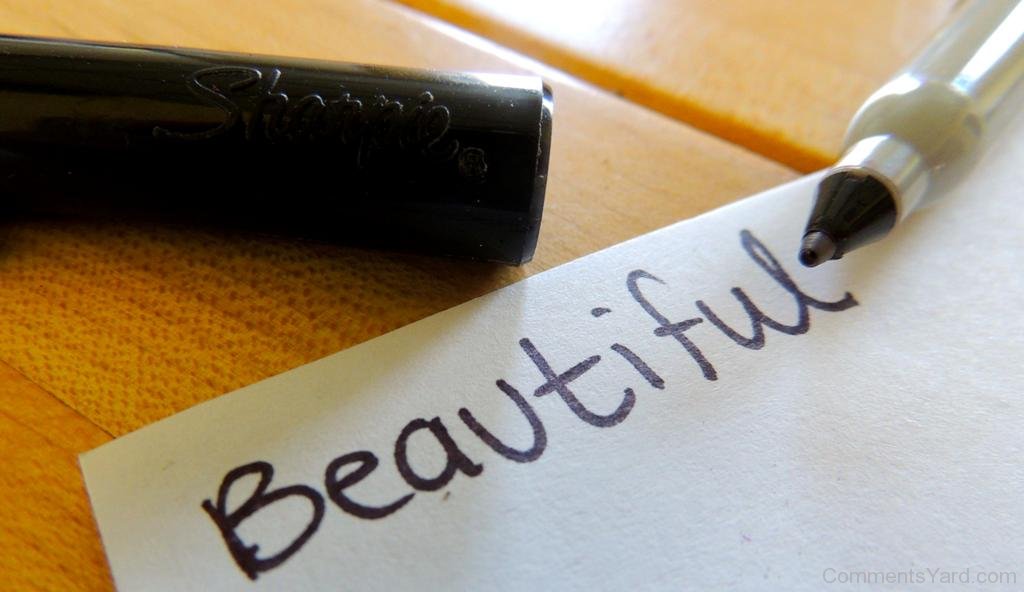 Sharpie®
Beautiful
CommentsYard.com